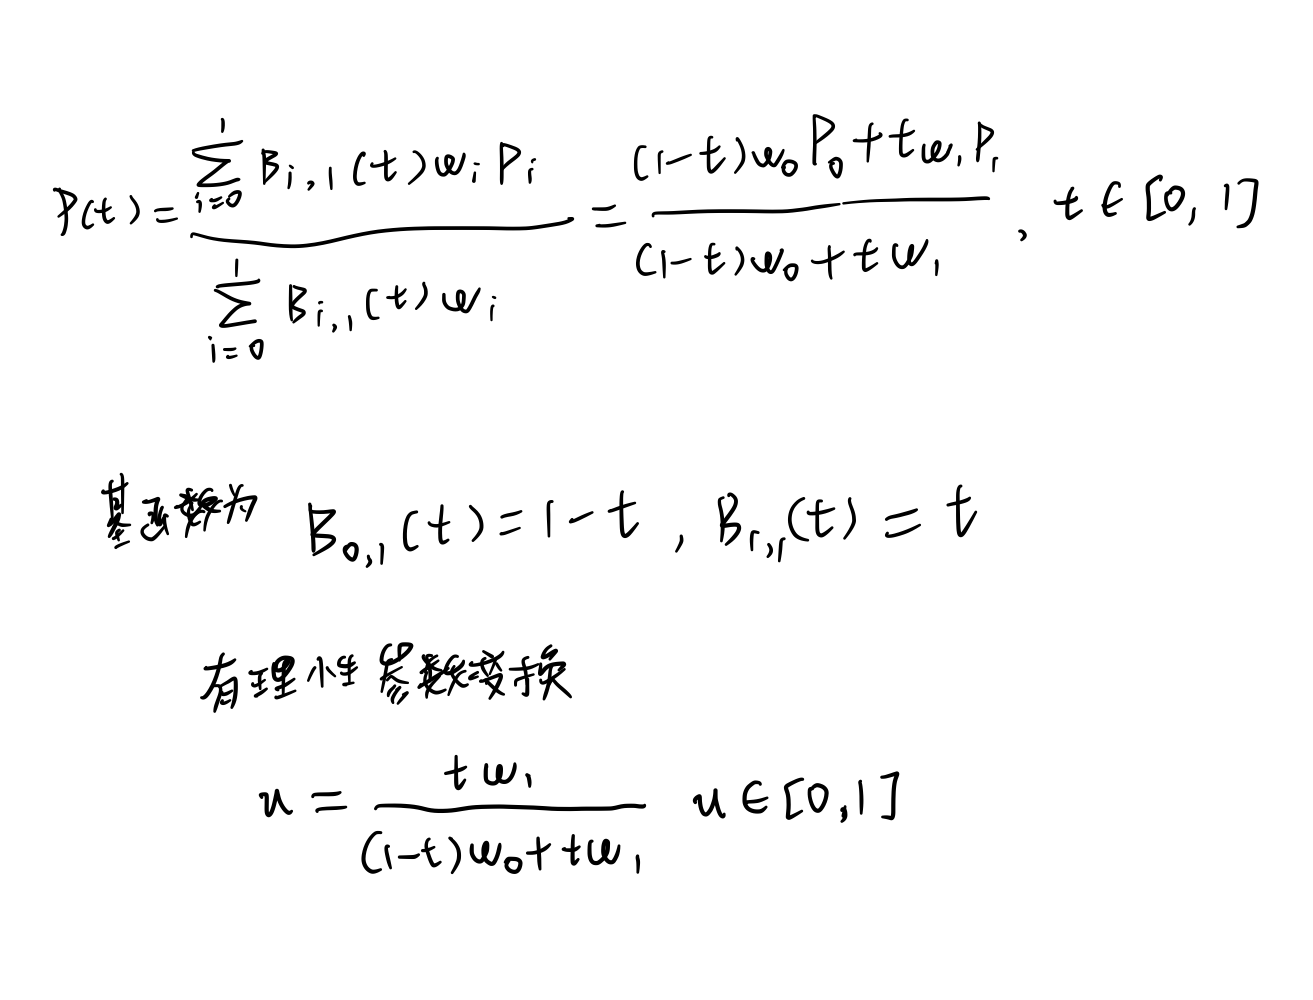 P(t) = \frac{\sum_{i=0}^{1} B_{i,1}(t) w_i P_i}{\sum_{i=0}^{1} B_{i,1}(t) w_i} = \frac{(1-t) w_0 P_0 + t w_1 P_1}{(1-t) w_0 + t w_1}, t ∈ [0, 1]
基函数为 B_{0,1}(t) = 1 - t, B_{1,1}(t) = t
有理性参数变换
u = \frac{t w_1}{(1-t) w_0 + t w_1} u ∈ [0, 1]